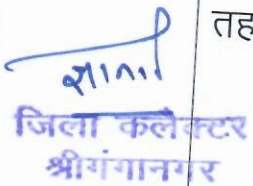 तह
जिला कलैक्टर
श्रीगंगानगर